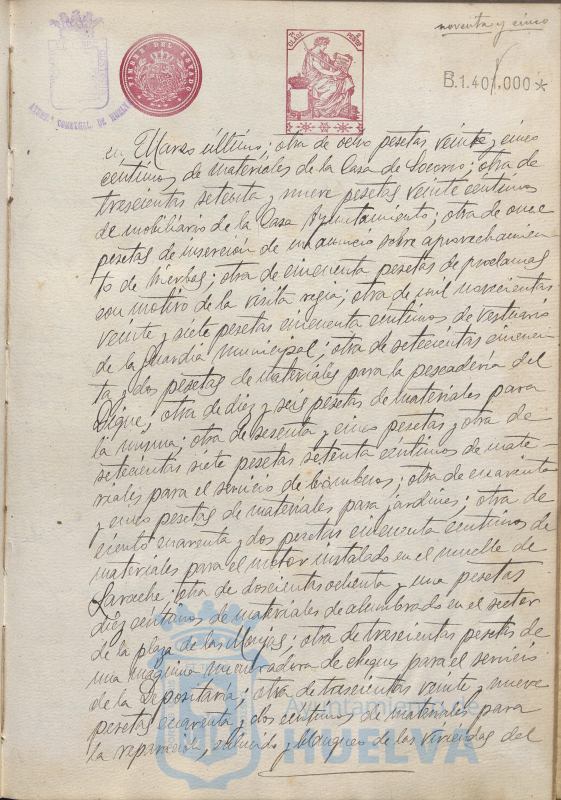 noventa y cinco
TIMBRE DEL ESTADO
7ª CLASE
B.1.401.000*
AYUNTº CONSTCIAL. DE HUELVA
en Marzo último; otra de ocho pesetas veinte y cinco
céntimos de materiales de la Casa de Socorro; otra de
trescientas setenta y nueve pesetas veinte céntimos
de mobiliario de la Casa Ayuntamiento; otra de once
pesetas de inserción de un anuncio sobre aprovechamien-
to de hierbas; otra de cincuenta pesetas de proclamas
con motivo de la visita regia; otra de mil novecientas
veinte y siete pesetas cincuenta céntimos de vestuario
de la Guardia Municipal; otra de setecientas cincuen-
ta y dos pesetas de materiales para la pescadería del
Dique; otra de diez y seis pesetas de materiales para
la misma; otra de sesenta y cinco pesetas y otra de
setecientas siete pesetas setenta céntimos de mate-
riales para el servicio de bomberos; otra de cuarenta
y cinco pesetas de materiales para jardines; otra de
ciento cuarenta y dos pesetas cincuenta céntimos de
materiales para el motor instalado en el muelle de
Larache; otra de doscientas ochenta y una pesetas
diez céntimos de materiales de alumbrado en el sector
de la plaza de las Monjas; otra de trescientas pesetas de
una máquina de cheques para el servicio
de la Depositaría; otra de trescientas veinte y nueve
pesetas cuarenta y dos céntimos de materiales para
la reparación, y blanqueo de las viviendas del
Ayuntamiento de
HUELVA